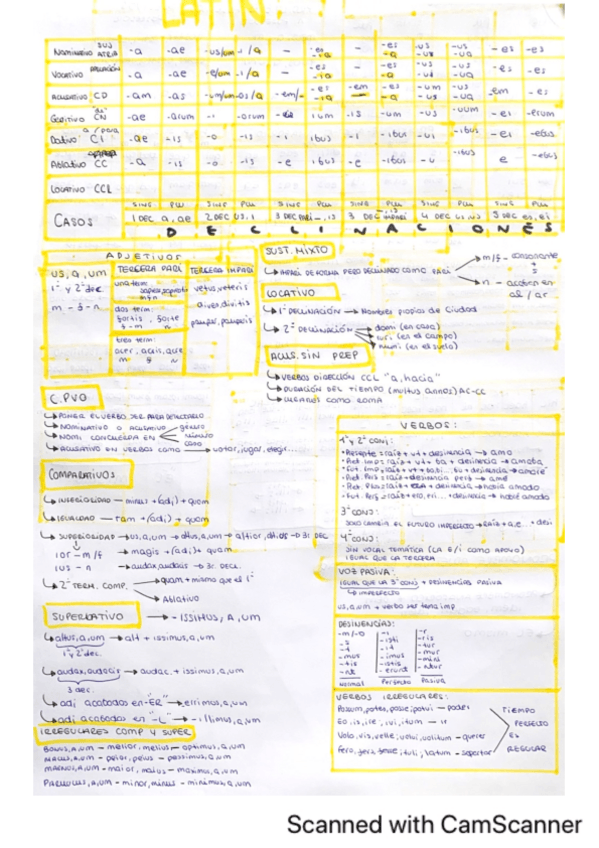 LATIN:
SUJ
NOMINATIVO ATRIB -a -ae -us/um -i/a - -es -ia - -es -a -us -us -ua -es -es
VOCATIVO -a -ae -e/um -i/a - -es -ia - -es -a -us -us -ua -es -es
ACUSATIVO CD -am -as -um/um -os/a -em/- -es -ia -em -es -a -um -us -ua -em -es
GENITIVO CN -ae -arum -i -orum -is -ium -is -um -us -uum -ei -erum
a/para
DATIVO CI -ae -is -o -is -i ibus -i -ibus -ui -ibus -ei -ebus
ABLATIVO CC -a -is -o -is -e ibus -e -ibus -u -ibus e -ebus
LOCATIVO CCL
SING PLU SING PLU SING PLU SING PLU SING PLU
CASOS 1 DEC a, ae 2 DEC us, i 3 DEC PARI -, is 3 DEC IMPARI 4 DEC us, us 5 DEC es, ei
DECLINACIONES
ADJETIVOS
us, a, um
1ª y 2ª dec
m - f - n
TERCERA PARI
una term:
m f n
dos term:
fortis, forte
f - m n
tres term:
acer, acris, acre
m f n
TERCERA IMPARI
vetus, veteris
dives, divitis
pauper, pauperis
SUST. MIXTO
IMPARI DE FORMA PERO DECLINADO COMO PARI
m/f - consonante + s
n - acaban en al / ar
LOCATIVO
1ª DECLINACIÓN → Nombres propios de Ciudad
2ª DECLINACIÓN → domi (en casa)
ruri (en el campo)
humi (en el suelo)
ACUS. SIN PREP
VERBOS DIRECCIÓN CCL "a, hacia"
DURACIÓN DEL TIEMPO (multos annos) AC-CC
LUGARES COMO ROMA
C. PVO
PONER EL VERBO SER PARA DETECTARLO
NOMINATIVO O ACUSATIVO
NOMI CONCUERDA EN género
número
caso
ACUSATIVO EN VERBOS COMO → votar, jugar, elegir...
COMPARATIVOS
INFERIORIDAD — minus + (adj) + quam
IGUALDAD — tam + (adj) + quam
SUPERIORIDAD → us, a, um → altus, a, um → altior, altius → 3ª DEC
ior - m/f → magis + (adj) + quam
ius - n → audax, audacis → 3ª DECL.
2º TERM. COMP. → quam + mismo que el 1º
Ablativo
SUPERLATIVO → - ISSIMUS, A, UM
altus, a, um → alt + issimus, a, um
1ª y 2ª dec.
audax, audacis → audac. + issimus, a, um
3 dec.
adj acabados en -"ER" → errimus, a, um
adj acabados en "-L" → -illimus, a, um
IRREGULARES COMP Y SUPER
BONUS, A, UM - melior, melius - optimus, a, um
MALUS, A, UM - peior, peius - pessimus, a, um
MAGNUS, A, UM - maior, maius - maximus, a, um
PARVUS, A, UM - minor, minus - minimus, a, um
VERBOS:
1ª y 2ª CONJ:
Presente = raíz + vt + desinencia → amo
Pret. Imp = raíz + vt + ba + desinencia → amaba
Fut. Imp = raíz + vt + bo, bi... bu + desinencia → amaré
Pret. Perf = raíz + desinencia perf → amé
Pret. Plus = raíz + era + desinencia → había amado
Fut. Perf = raíz + ero, eri... + desinencia → habré amado
3ª CONJ:
SOLO CAMBIA EL FUTURO IMPERFECTO → RAÍZ + a, e... + desi
4ª CONJ:
SIN VOCAL TEMÁTICA (LA E/I COMO APOYO)
IGUAL QUE LA TERCERA
VOZ PASIVA:
IGUAL QUE LA 3ª CONJ + DESINENCIAS PASIVA
IMPERFECTO
us, a, um + verbo ser
DESINENCIAS:
-m/-o -i -r
-s -isti -ris
-t -it -tur
-mus -imus -mur
-tis -istis -mini
-nt -erunt -ntur
NORMAL PERFECTO PASIVA
VERBOS IRREGULARES:
Possum, potes, posse, potui - poder
Eo, is, ire, ivi, itum - ir
Volo, vis, velle, volui - querer
Fero, fers, ferre, tuli, latum - soportar
TIEMPO
PERFECTO
ES
REGULAR
Scanned with CamScanner